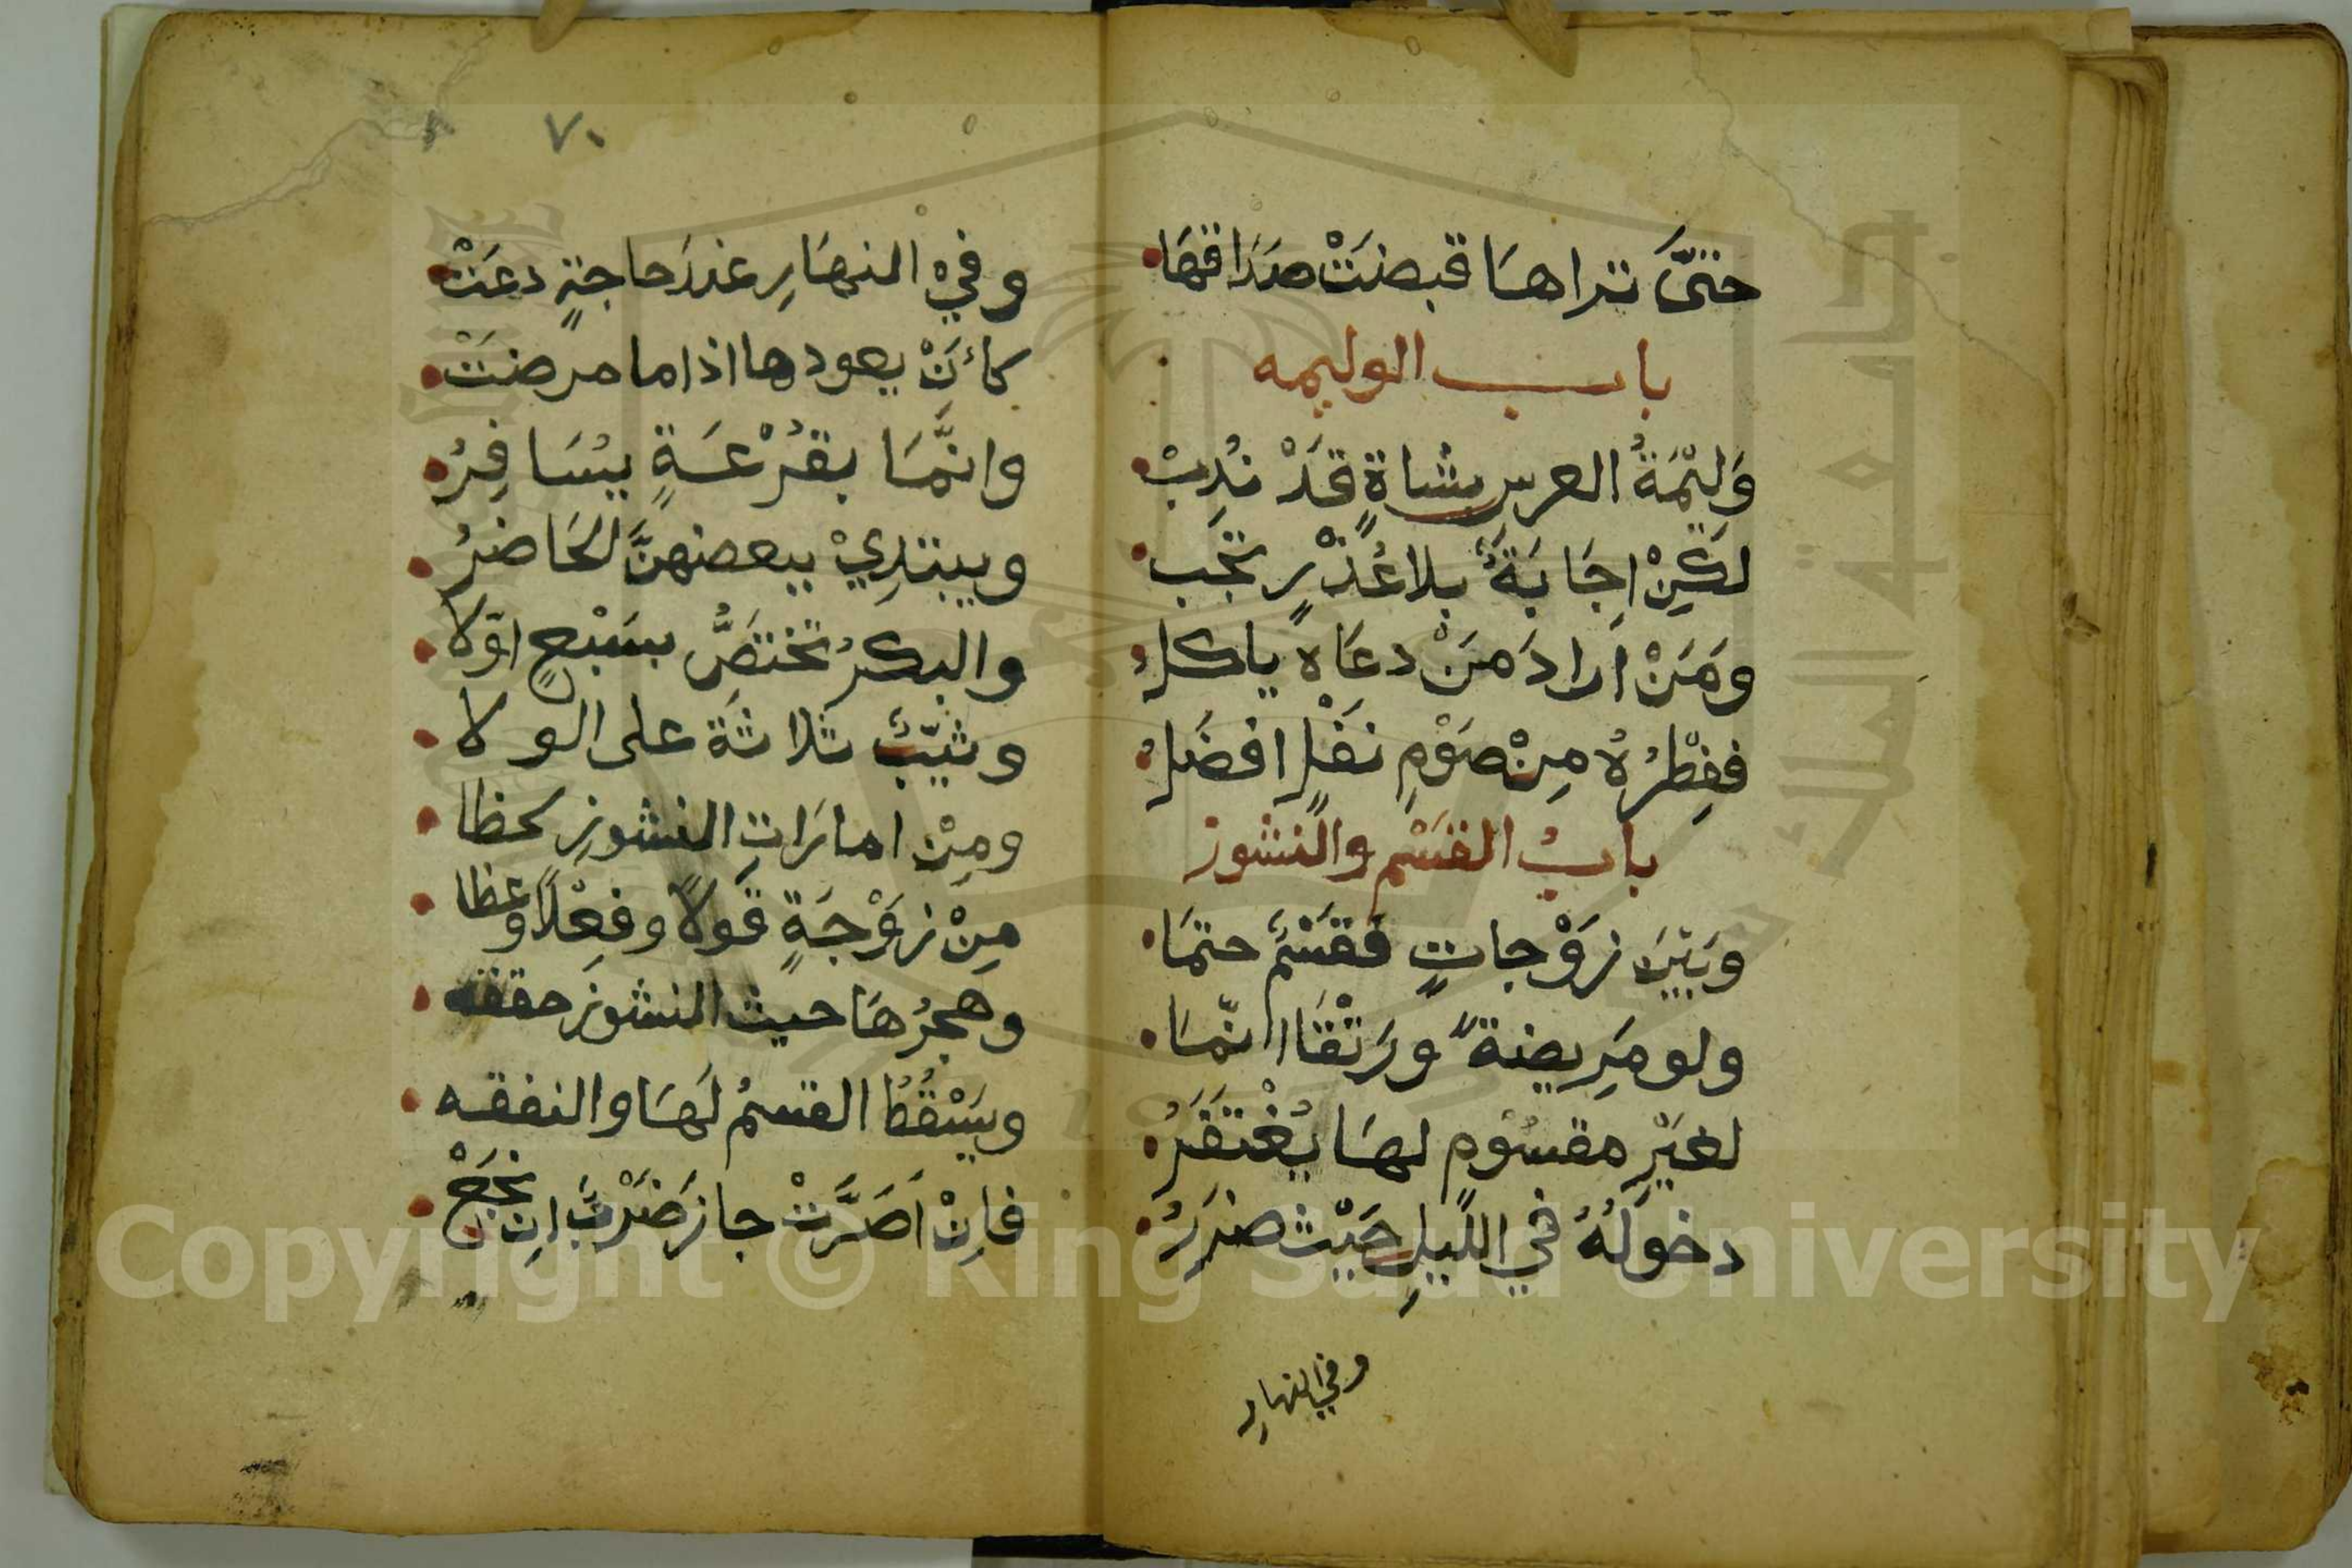 حتَّى تراها قبضَتْ صَدَاقهَا
باب الوليمه
وَلِيْمَةُ العرسِ بشاةٍ قَدْ نُدِبْ
لكِنْ اِجَابَةٌ بلا عُذْرٍ تجَب
ومَنْ اَرادَ مَنْ دعَاه ياكلُ
ففِطْرُهُ مِنْ صَوْمِ نَفْلٍ افضَلُ
بابُ القَسْمِ والنشوز
وبَيْنَ زَوْجاتٍ فقَسْمٌ حتمَا
ولو مَرِيضةً ورَتْقَا انّمَا
لغَيْرِ مقسُوْمٍ لهَا يُغْتَفَرُ
دخولُهُ في الليلِ حَيْث ضرَرُ
وفي النهارِ
٧٠
وفيْ النهَارِ عندَ حاجةٍ دعَتْ
كأَنْ يعودها اذا ما مرضَتْ
وانَّمَا بقُرْعَةٍ يسَافِرُ
ويبتدِيْ ببعضهنَّ الحَاضرُ
والبكرُ تختَصُّ بسَبْعٍ اوّلا
وثيّبٌ ثلاثَة على الولا
ومِنْ امارَاتِ النشوزِ لحظا
مِنْ زَوْجَةٍ قَولاً وفِعْلاً وعظا
وهجرُهَا حيث النشوزِ حققه
ويَسْقُطُ القسمُ لهَا والنفقه
فاِنْ اَصَرَّتْ جازَ ضَرْبٌ اِن نجَحْ
Copyright © King Saud University